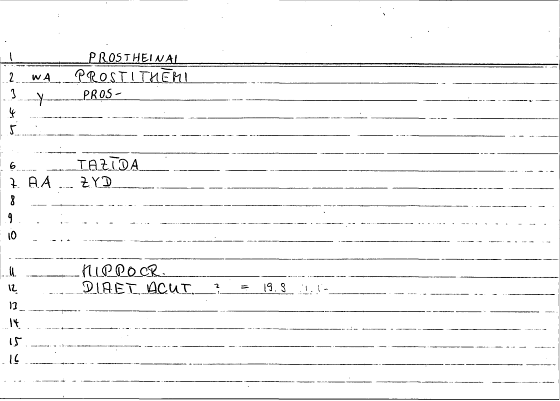 1 PROSTHEINAI
2 WA PROSTITHĒMI
3 Y PROS-
4
5
6 TAZĪDA
7 AA ZYD
8
9
10
11 HIPPOCR.
12 DIAET ACUT. = 19.3
13
14
15
16